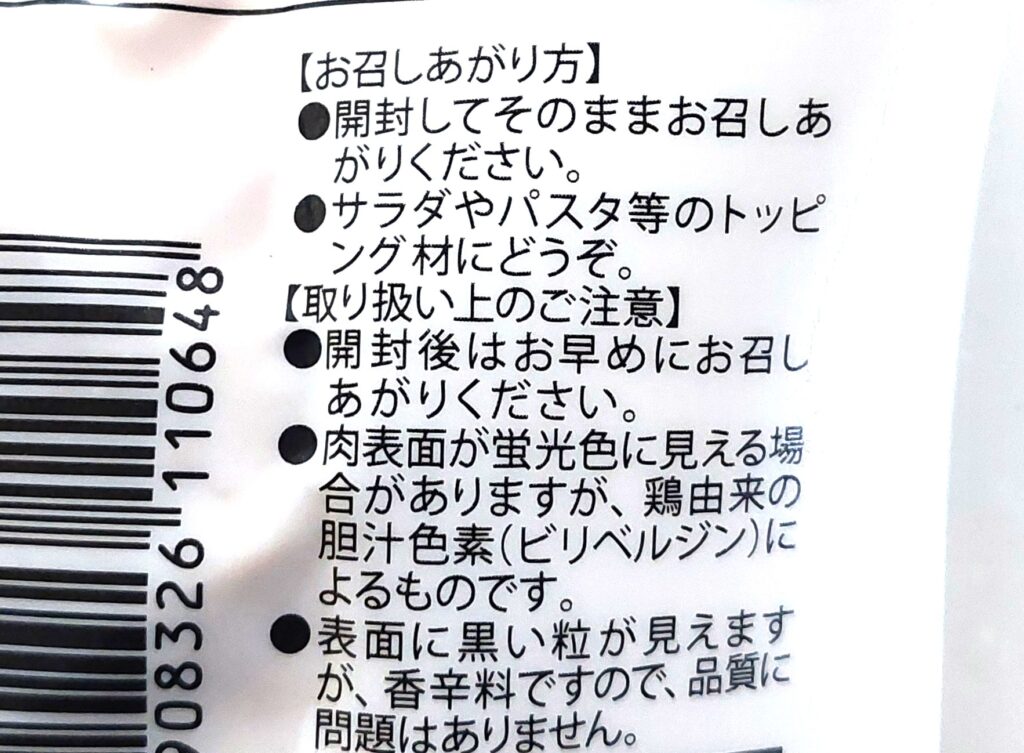 【お召しあがり方】
●開封してそのままお召しあ
がりください。
●サラダやパスタ等のトッピ
ング材にどうぞ。
【取り扱い上のご注意】
●開封後はお早めにお召し
あがりください。
●肉表面が蛍光色に見える場
合がありますが、鶏由来の
胆汁色素(ビリベルジン)に
よるものです。
●表面に黒い粒が見えます
が、香辛料ですので、品質に
問題はありません。
908326 110648